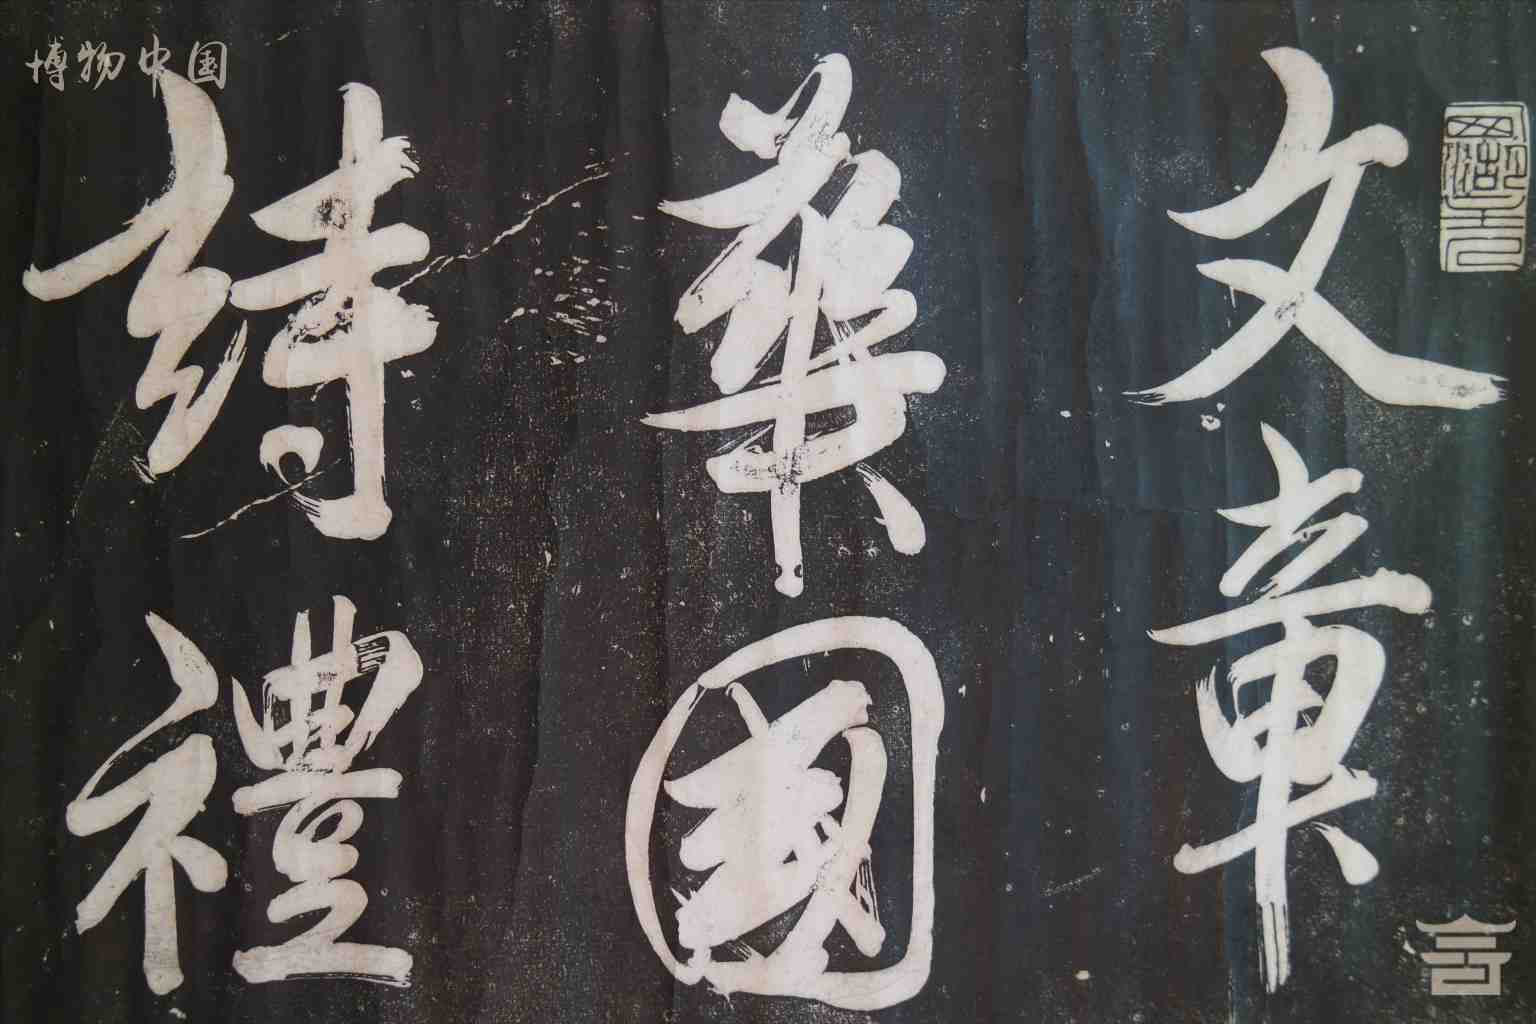 博物中国
文章
華國
詩禮